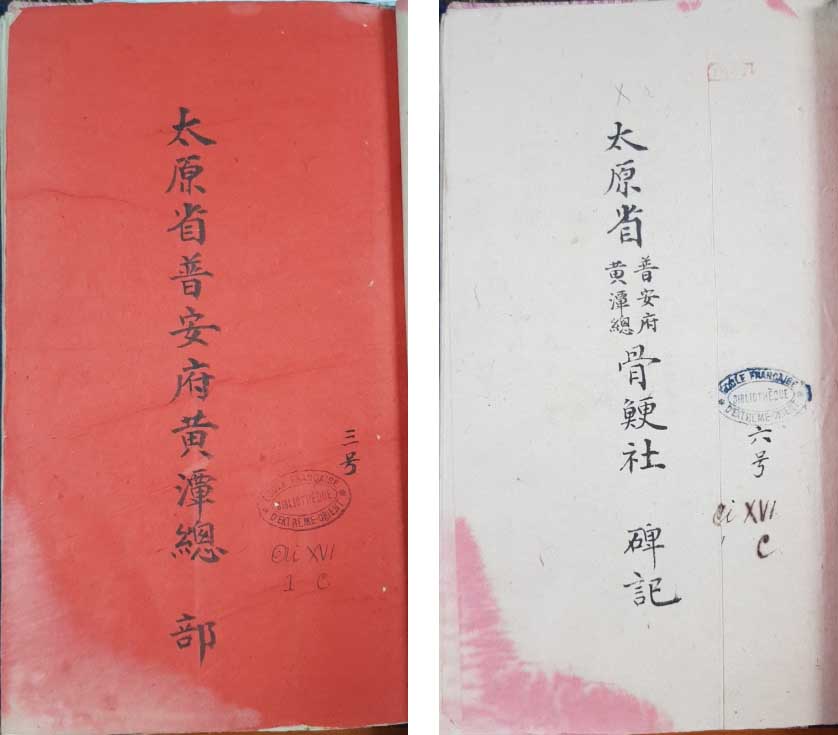 太原省普安府黄潭總 部
三号
ÉCOLE FRANÇAISE
BIBLIOTHÈQUE
D'EXTRÊME-ORIENT
Qi XVI
1 C
太原省
普安府
黄潭總
骨鯁社 碑記
ÉCOLE FRANÇAISE
BIBLIOTHÈQUE
D'EXTRÊME-ORIENT
六号
Qi XVI
C